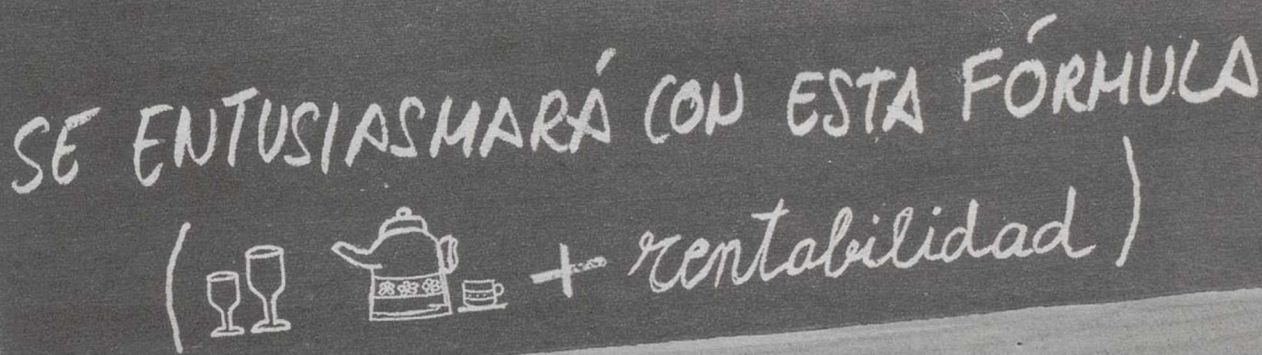 SE ENTUSIASMARÁ CON ESTA FÓRMULA
( + rentabilidad)